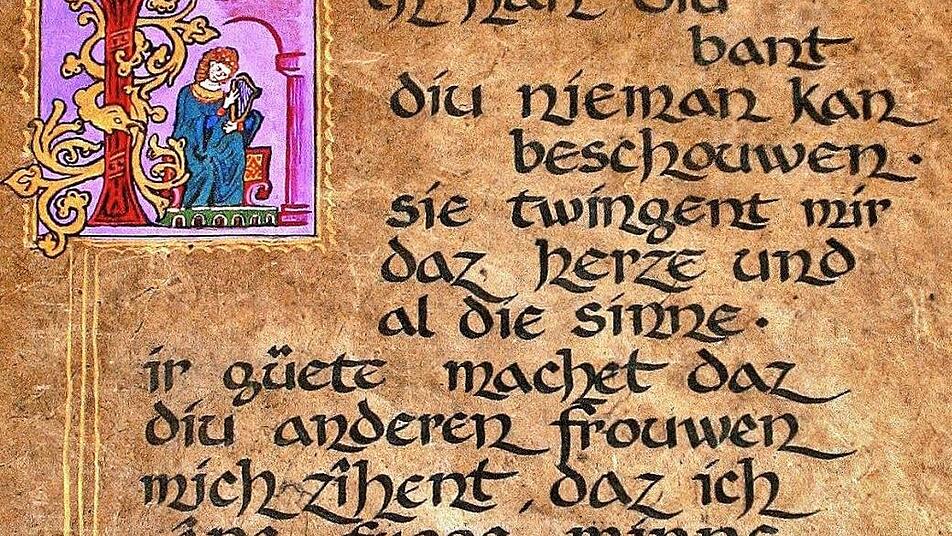 diu
bant
diu nieman kan
beschouwen·
sie twingent mir
daz herze und
al die sinne·
ir güete machet daz
diu anderen frouwen
mich zîhent, daz ich
minne